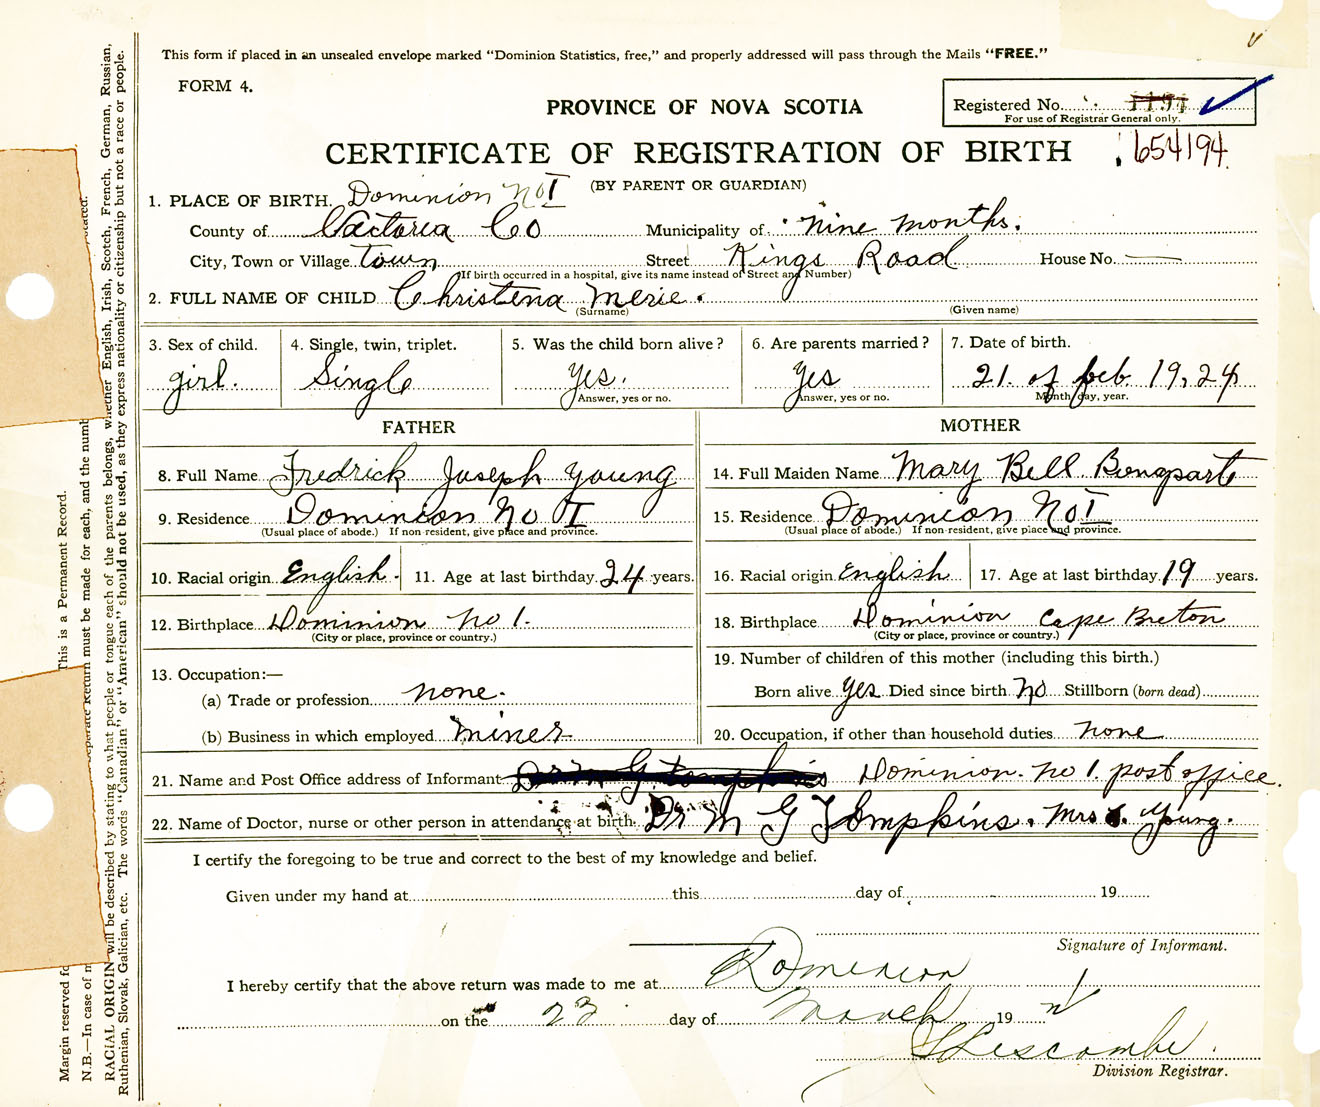 This form if placed in an unsealed envelope marked "Dominion Statistics, free," and properly addressed will pass through the Mails "FREE."
FORM 4.
PROVINCE OF NOVA SCOTIA
Registered No.
For use of Registrar General only.
CERTIFICATE OF REGISTRATION OF BIRTH
654194
(BY PARENT OR GUARDIAN)
1. PLACE OF BIRTH. Dominion No I
County of Victoria Co Municipality of nine months.
City, Town or Village town Street Kings Road House No. —
(If birth occurred in a hospital, give its name instead of Street and Number)
2. FULL NAME OF CHILD Christena Merie.
(Surname) (Given name)
3. Sex of child. 4. Single, twin, triplet. 5. Was the child born alive? 6. Are parents married? 7. Date of birth.
girl. Single yes. yes 21. of feb 19,24
Answer, yes or no. Answer, yes or no. Month, day, year.
FATHER MOTHER
8. Full Name Fredrick Joseph Young 14. Full Maiden Name Mary Bell Bonapart
9. Residence Dominion No I 15. Residence Dominion No I
(Usual place of abode.) If non-resident, give place and province. (Usual place of abode.) If non-resident, give place and province.
10. Racial origin English. 11. Age at last birthday. 24 years. 16. Racial origin English 17. Age at last birthday. 19 years.
12. Birthplace Dominion no 1. 18. Birthplace Dominion Cape Breton
(City or place, province or country.) (City or place, province or country.)
13. Occupation:— 19. Number of children of this mother (including this birth.)
(a) Trade or profession none. Born alive yes Died since birth no Stillborn (born dead)
(b) Business in which employed miner 20. Occupation, if other than household duties none
21. Name and Post Office address of Informant Dominion. no 1. post office.
22. Name of Doctor, nurse or other person in attendance at birth. Dr M G Tompkins. Mrs Young.
I certify the foregoing to be true and correct to the best of my knowledge and belief.
Given under my hand at this day of 19
Signature of Informant.
I hereby certify that the above return was made to me at Dominion
on the 23 day of March 19
Division Registrar.
Margin reserved
This is a Permanent Record.
N.B.—In case of must be made for each, and the
RACIAL ORIGIN will be described by stating to what people or tongue each of the parents belongs, whether English, Irish, Scotch, French, German, Russian,
Ruthenian, Slovak, Galician, etc. The words "Canadian" or "American" should not be used, as they express nationality or citizenship but not a race or people.